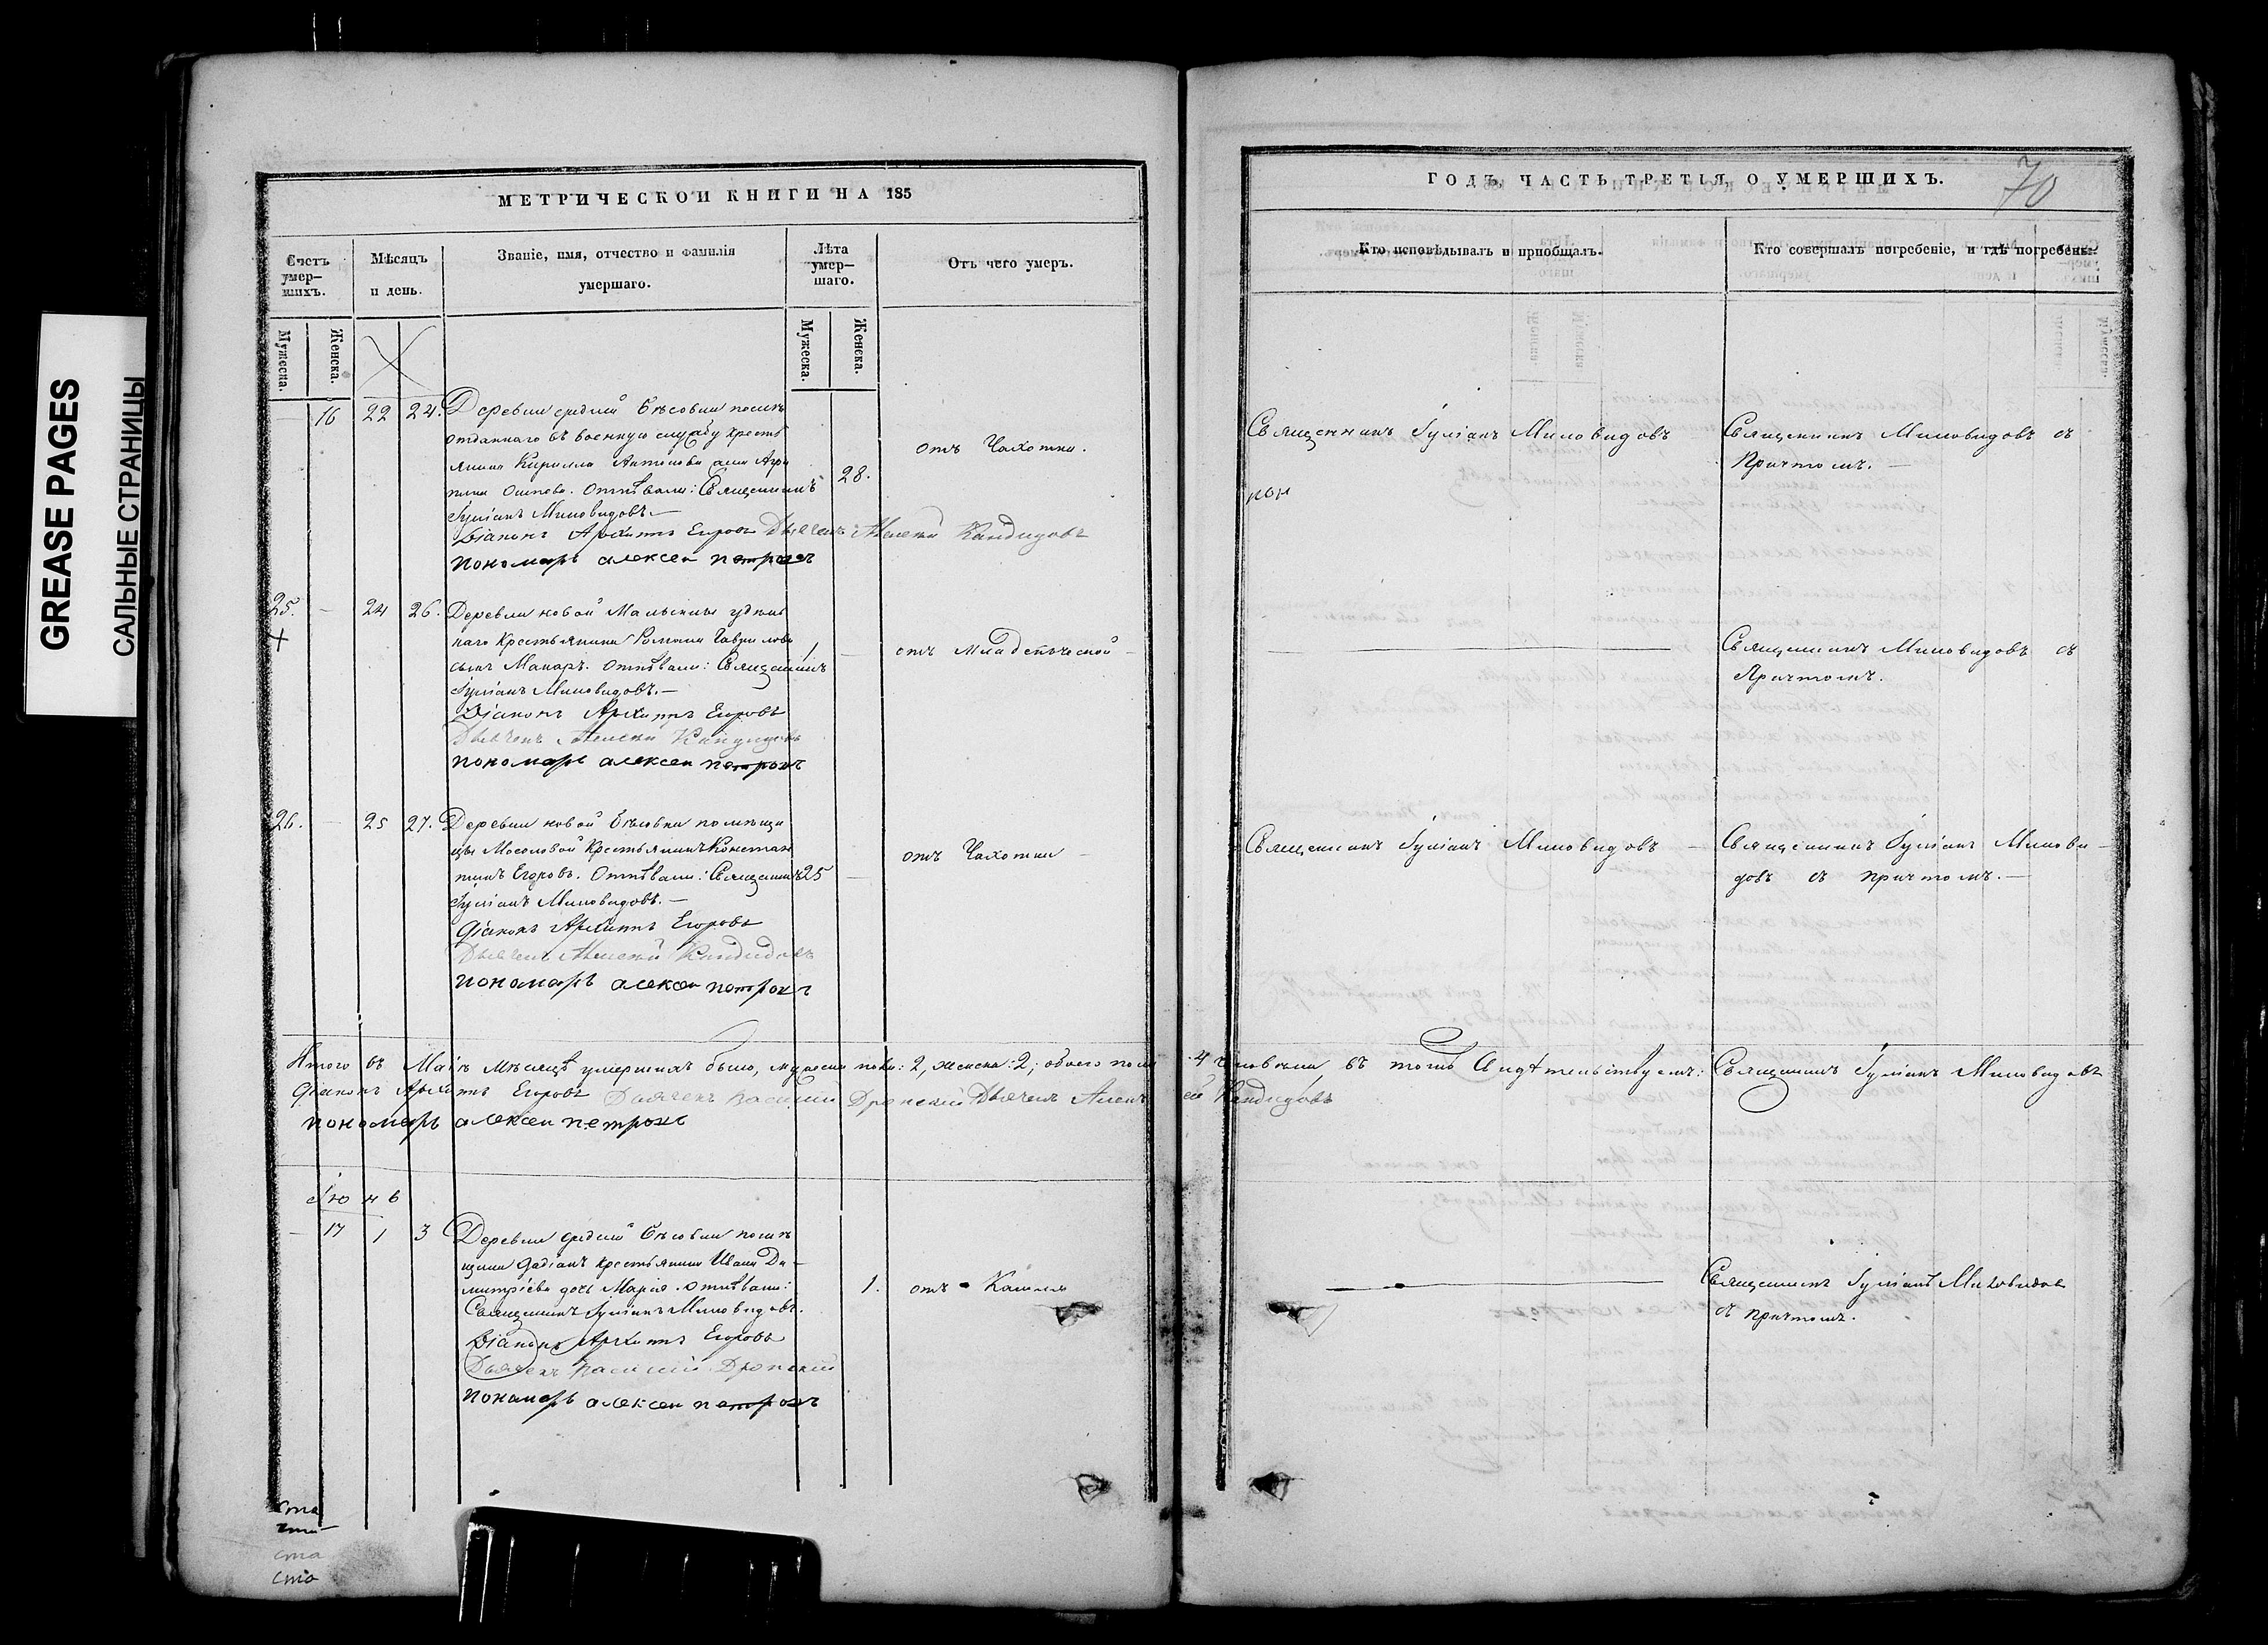 GREASE PAGES
САЛЬНЫЕ СТРАНИЦЫ
МЕТРИЧЕСКОЙ КНИГИ НА 185
Счетъ умер-шихъ.
Мужеска.
Женска.
Мѣсяцъ и день.
Званіе, имя, отчество и фамилія умершаго.
Лѣта умер-шаго.
Мужеска.
Женска.
Отъ чего умеръ.
16 22 24. Деревни средней
отданнаго въ военную службу кресть
янина Кирилла Антонова
Осипова. Отпѣвали: Священникъ 28. отъ Чахотки.
Іуліанъ Миловидовъ.—
Діаконъ Архиппъ Егоровъ Дьячекъ Алексей Кандидовъ
пономарь алексеи петровъ
25. — 24 26. Деревни новой удѣль
наго Крестьянина Романа Гаврилова
сынъ Макаръ. Отпѣвали: Священникъ 1 — отъ младенческой
Іуліанъ Миловидовъ.—
Діаконъ Архиппъ Егоровъ
Дьячекъ Алексей Кандидовъ
пономарь алексеи петровъ
26. — 25 27. Деревни новой помѣщи
цы Мосоловой Крестьянинъ Констан
тинъ Егоровъ. Отпѣвали: Священникъ 25 — отъ Чахотки —
Іуліанъ Миловидовъ.—
Діаконъ Архиппъ Егоровъ
Дьячекъ Алексей Кандидовъ
пономарь алексеи петровъ
Итого въ Маіѣ Мѣсяцѣ умершихъ было, мужеска пола: 2, женска: 2; обоего пола
Діаконъ Архиппъ Егоровъ Дьячекъ Василий Дронский Дьячекъ Алексей Кандидовъ
пономарь алексеи петровъ
Іюнь
— 17 1 3 Деревни средней помѣ
щика Дадіанъ крестьянина Ивана Ди-
митріева дочь Марія. отпѣвали: 1. отъ Кашля
Священникъ Іуліанъ Миловидовъ.
Діаконъ Архиппъ Егоровъ
Дьячекъ Василий Дронский
пономарь алексеи петровъ
ста
ста
ста
ста
ГОДЪ, ЧАСТЬ ТРЕТІЯ, О УМЕРШИХЪ.
70
Кто исповѣдывалъ и пріобщалъ.
Кто совершалъ погребеніе, и гдѣ погребены.
Священникъ Іуліанъ Миловидовъ
Священникъ Миловидовъ съ
Причтомъ.—
пон
Священникъ Миловидовъ съ
Причтомъ.
Священникъ Іуліанъ Миловидовъ —
Священникъ Іуліанъ Милови-
довъ съ причтомъ.—
4 человека, въ томъ Свидѣтельствуемъ: Священникъ Іуліанъ Миловидовъ
Священникъ Іуліанъ Миловидовъ
съ причтомъ.